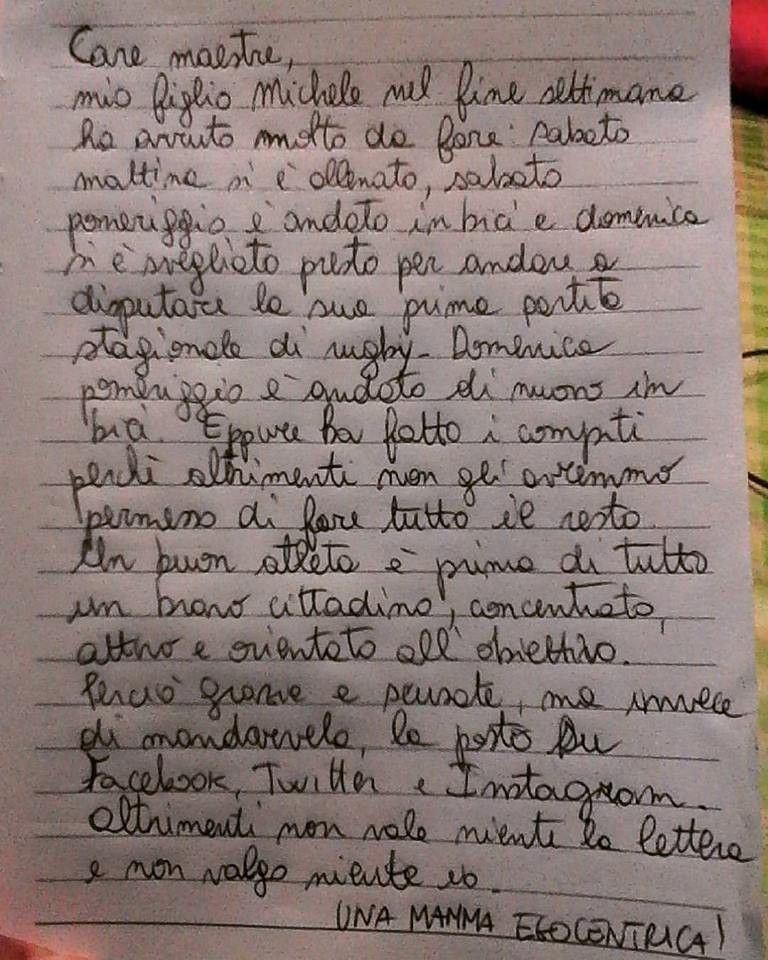 Care maestre,
mio figlio Michele nel fine settimana
ha avuto molto da fare: sabato
mattina si è allenato, sabato
pomeriggio è andato in bici e domenica
si è svegliato presto per andare a
disputare la sua prima partita
stagionale di rugby. Domenica
pomeriggio è andato di nuovo in
bici. Eppure ha fatto i compiti
perchè altrimenti non gli avremmo
permesso di fare tutto il resto.
Un buon atleta è prima di tutto
un bravo cittadino, concentrato,
attivo e orientato all'obiettivo.
Perciò grazie e scusate, ma invece
di mandarvela, la posto su
Facebook, Twitter e Instagram.
Altrimenti non vale niente la lettera
e non valgo niente io.
UNA MAMMA EGOCENTRICA!